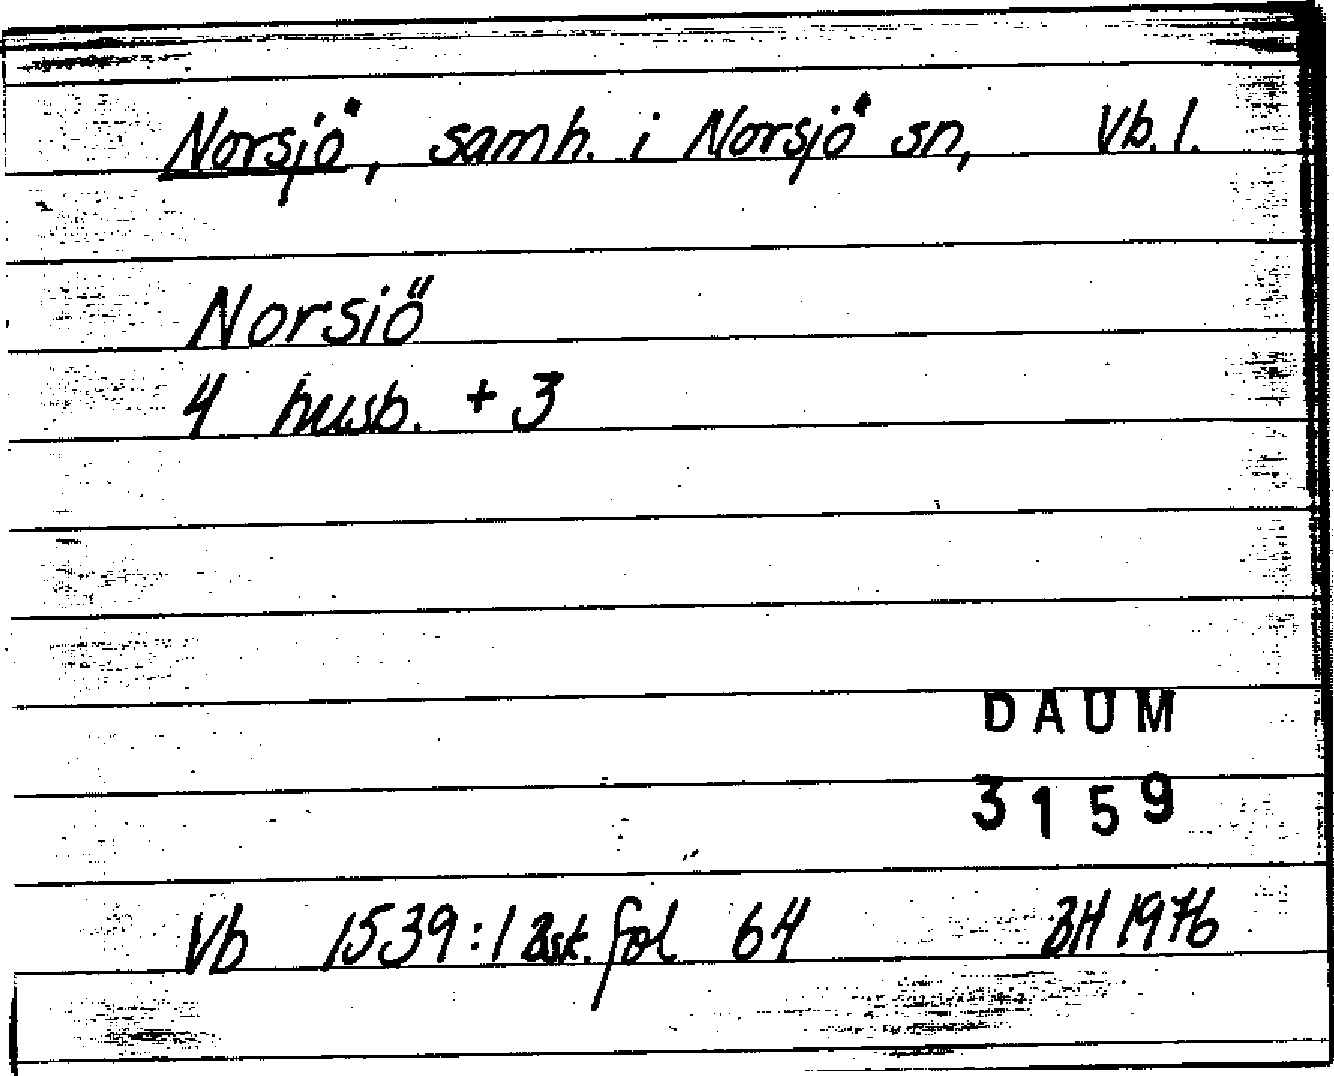 Norsjö, samh. i Norsjö sn, Vb. l.
Norsiö
4 husb. + 3
DAUM
3159
Vb 1539:1 Bsk. fol 64 BH 1976